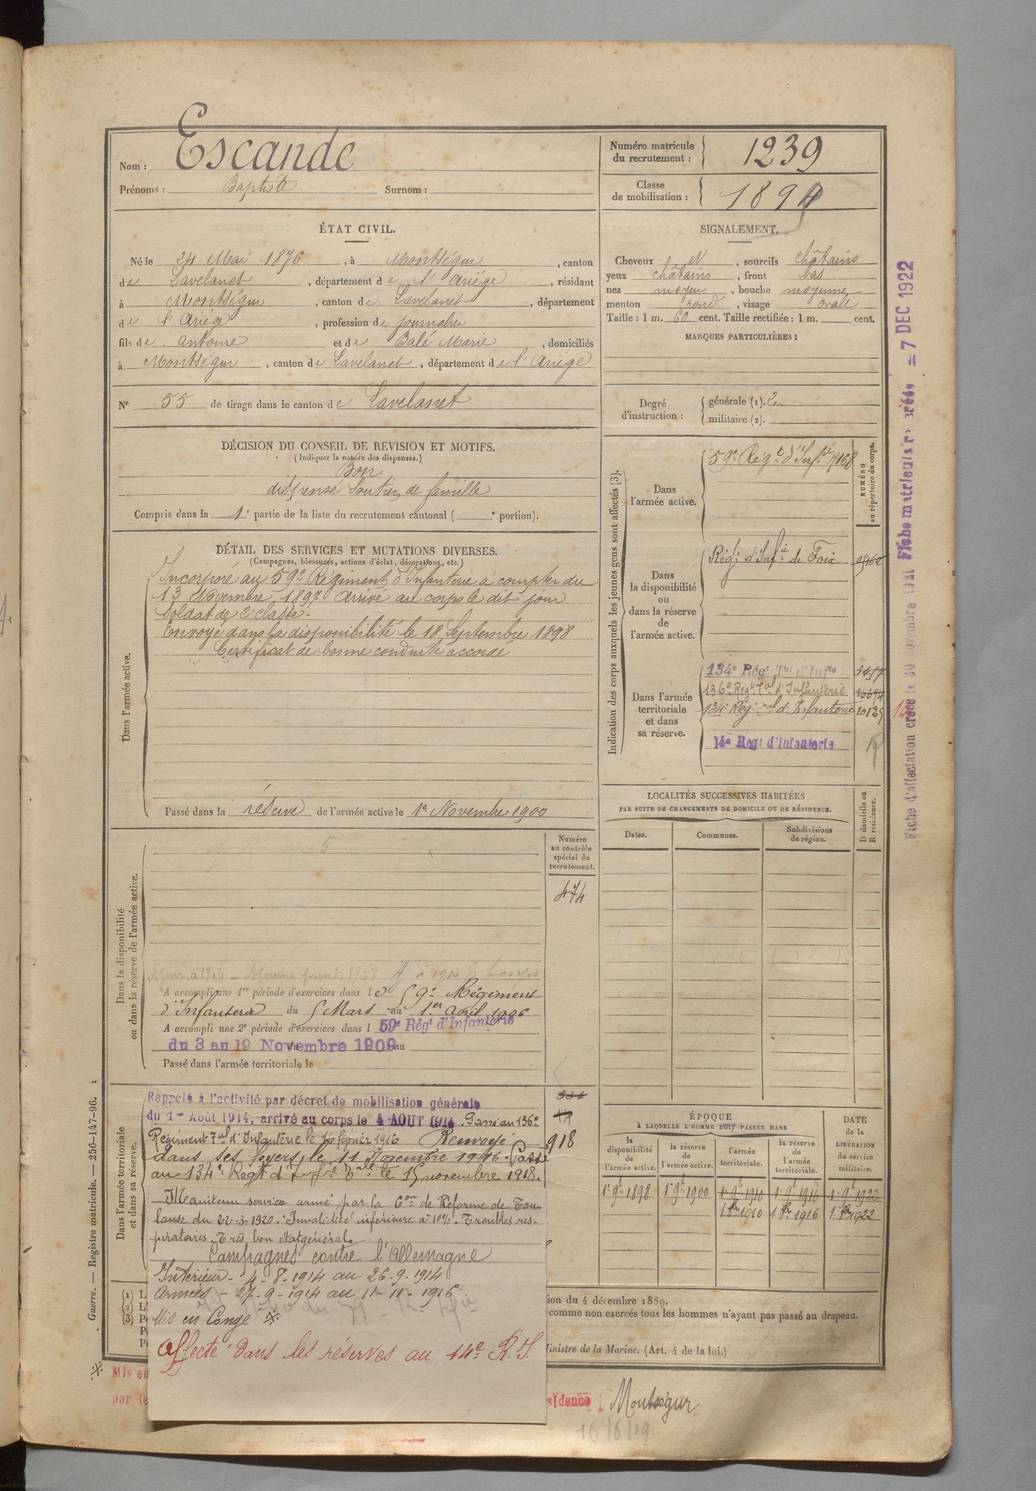 Nom : Escande
Prénoms : Baptiste Surnom :
Numéro matricule du recrutement : 1239
Classe de mobilisation : 1894
ÉTAT CIVIL.
Né le 24 Mai 1876, à Montségur, canton
de Lavelanet, département de l'Ariège, résidant
à Montségur, canton de Lavelanet, département
de l'Ariège, profession de journalier
fils de Antoine et de Balé Marie, domiciliés
à Montségur, canton de Lavelanet, département de l'Ariège
N° 55 de tirage dans le canton de Lavelanet
SIGNALEMENT.
Cheveux et, sourcils châtains
yeux châtains, front bas
nez moyen, bouche moyenne
menton rond, visage ovale
Taille : 1 m. 60 cent. Taille rectifiée : 1 m. cent.
MARQUES PARTICULIÈRES :
Degré d'instruction :
générale (1). 2
militaire (2).
DÉCISION DU CONSEIL DE REVISION ET MOTIFS.
(Indiquer la nature des dispenses.)
Bon
dispensé Soutien de famille
Compris dans la 1e partie de la liste du recrutement cantonal ( e portion).
DÉTAIL DES SERVICES ET MUTATIONS DIVERSES.
(Campagnes, blessures, actions d'éclat, décorations, etc.)
Dans l'armée active.
Incorporé au 59e Régiment d'Infanterie à compter du
13 Novembre 1897 Arrivé au corps le dit jour
Soldat de 2e classe.
Envoyé dans la disponibilité le 18 Septembre 1898
Certificat de bonne conduite accordé
Passé dans la réserve de l'armée active le 1er Novembre 1900
Indication des corps auxquels les jeunes gens sont affectés (3).
NUMÉRO au répertoire du corps.
Dans l'armée active.
59e Régt d'Infie 7168
Dans la disponibilité ou dans la réserve de l'armée active.
Régt d'Infie de Foix
Dans l'armée territoriale et dans sa réserve.
134e Régt Tal d'Infie
136e Régt Tal d'Infanterie
134e Régt Tal d'Infanterie 10129
14e Régt d'Infanterie
LOCALITÉS SUCCESSIVES HABITÉES
PAR SUITE DE CHANGEMENTS DE DOMICILE OU DE RÉSIDENCE.
Dates. Communes. Subdivisions de région. D domicile ou R résidence.
Numéro au contrôle spécial du recrutement.
474
Dans la disponibilité ou dans la réserve de l'armée active.
A accompli une 1re période d'exercices dans le 59e Régiment
d'Infanterie du 5 Mars au 1er Avril 1906
A accompli une 2e période d'exercices dans l 59e Régt d'Infanterie
du 3 au 19 Novembre 1909 au
Passé dans l'armée territoriale le
Dans l'armée territoriale et dans sa réserve.
Rappelé à l'activité par décret de mobilisation générale
du 1er Août 1914, arrivé au corps le 4 AOUT 1914 Passé au 136e
Régiment Tal d'Infanterie le 16 février 1916 Renvoyé
dans ses foyers le 11 Novembre 1916. Passé
au 134e Régt d'Infie Tale le 15 novembre 1918.
918
Maintenu service armé par la Con de Réforme de Tou-
louse du 22-3-1920. Invalidité inférieure à 10%. Troubles res-
piratoires. Très bon état général.
Campagnes contre l'Allemagne
Intérieur - 4-8-1914 au 26-9-1914
Armées - 27-9-1914 au 11-11-1916
Mis en Congé
Affecté dans les réserves au 14e R.I.
ÉPOQUE
À LAQUELLE L'HOMME DOIT PASSER DANS
la disponibilité de l'armée active. la réserve de l'armée active. l'armée territoriale. la réserve de l'armée territoriale.
DATE de la LIBÉRATION du service militaire.
1er 9bre 1898 1er 9bre 1900 1er 9bre 1910 1er 9bre 1916 1er 9bre 1922
1er 8bre 1910 1er 8bre 1916 1er 8bre 1922
ion du 4 décembre 1889.
comme non exercés tous les hommes n'ayant pas passé au drapeau.
Ministre de la Marine. (Art. 4 de la loi.)
Mis en
par le
sidence : Montségur
16/6/19
Guerre. — Registre matricule. — 256-147-96.
Fiche d'affectation créée le 30 novembre 1921 Fiche matricule créée = 7 DEC 1922